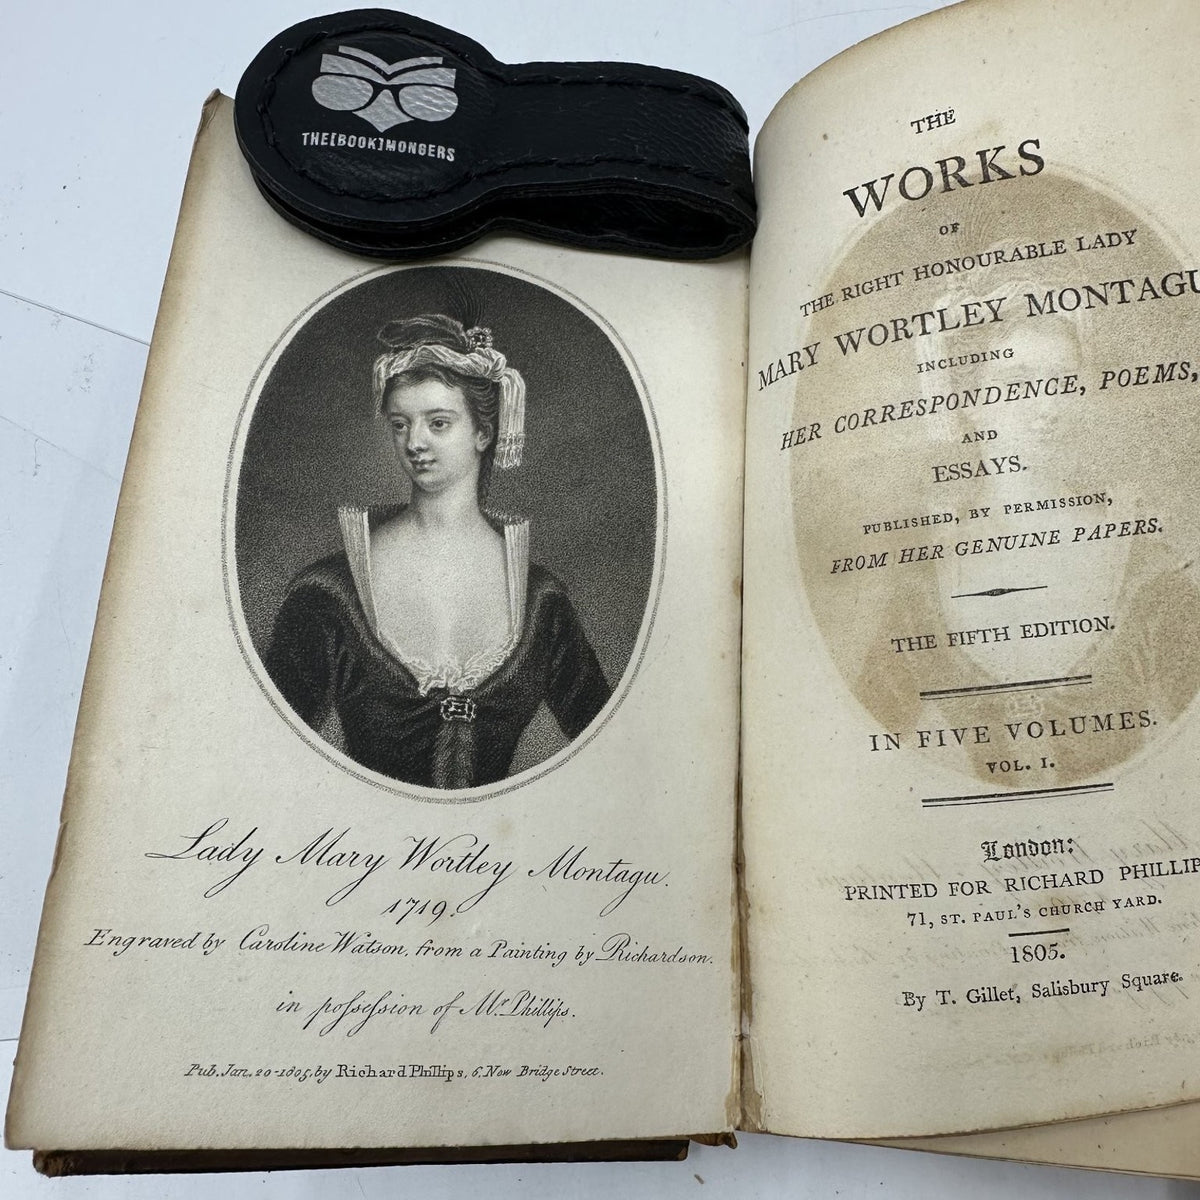 THE[BOOK]MONGERS
Lady Mary Wortley Montagu.
1719.
Engraved by Caroline Watson, from a Painting by Richardson.
in poſseſsion of Mr. Phillips.
Pub. Jan. 20-1805, by Richard Phillips, 6, New Bridge Street.
THE
WORKS
OF
THE RIGHT HONOURABLE LADY
MARY WORTLEY MONTAGU
INCLUDING
HER CORRESPONDENCE, POEMS,
AND
ESSAYS.
PUBLISHED, BY PERMISSION,
FROM HER GENUINE PAPERS.
THE FIFTH EDITION.
IN FIVE VOLUMES.
VOL. I.
London:
PRINTED FOR RICHARD PHILLIP
71, ST. PAUL'S CHURCH YARD.
1805.
By T. Gillet, Salisbury Square.